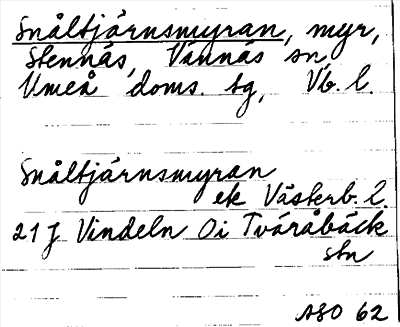 Snåltjärnsmyran, myr,
Stennäs, Vännäs sn,
Umeå doms. tg, Vb. l.
Snåltjärnsmyran
ek Västerb. l.
21 J Vindeln Oi Tväråbäck
stn
ASO 62